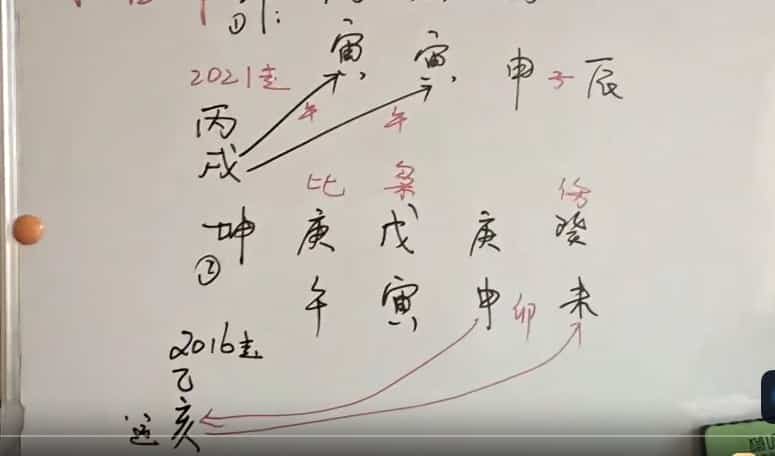 ①
寅 寅 申子辰
2021起
午 午
丙
戌
比 枭 伤
坤 庚 戊 庚 癸
②
午 寅 申 卯 未
2016起
乙
运 亥